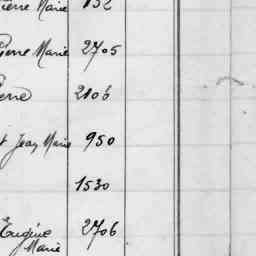 Pierre Marie 152
Pierre Marie 2705
Pierre 2106
t Jean Marie 950
1530
Eugène 2706
Marie